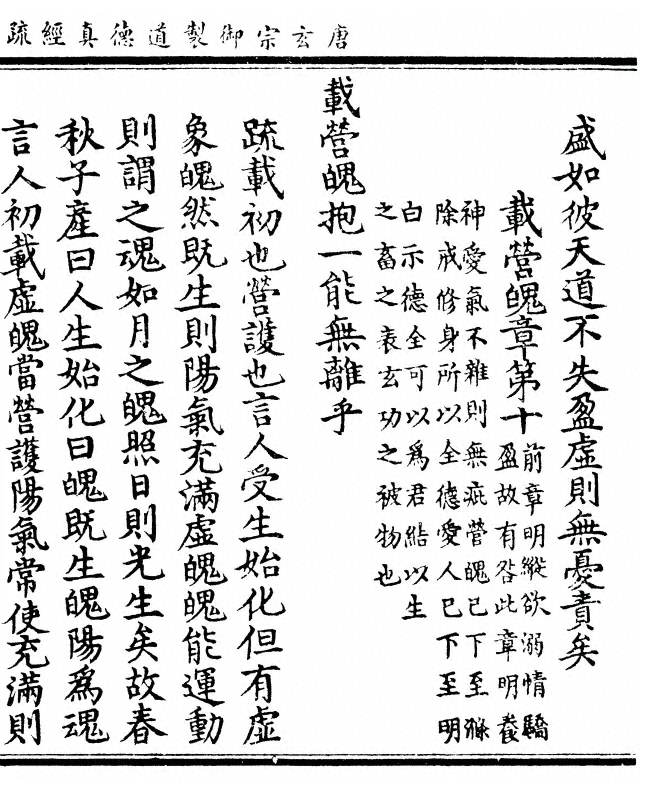 唐玄宗御製道德真經疏
盛如彼天道不失盈虛則無憂責矣
載營魄章第十
前章明縱欲溺情驕
盈故有咎此章明養
神愛氣不雜則無疵營魄已下至滌
除戒修身所以全德愛人已下至明
白示德全可以為君結以生
之畜之表玄功之被物也
載營魄抱一能無離乎
疏載初也營護也言人受生始化但有虛
象魄然既生則陽氣充滿虛魄魄能運動
則謂之魂如月之魄照日則光生矣故春
秋子產曰人生始化曰魄既生魄陽爲魂
言人初載虛魄當營護陽氣常使充滿則